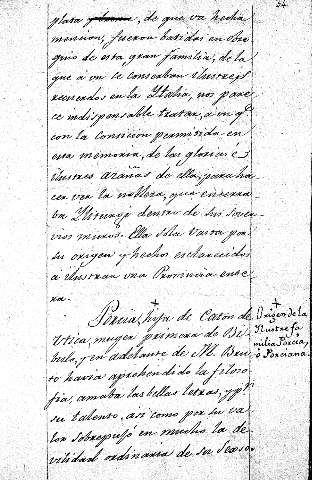 54
plata, de que va hecha
mencion, fueron batidas en obse-
quio de esta gran familia, de la
que a un se conserban ilustres
recuerdos en la Ytalia, nos pare-
ce indispensable tratar, a un qe.
con la concicion permitida en
esta memoria, de las glorias é
ilustres azañas de ella, para ha-
cer ver la nobleza, que encerra-
ba Yliturgi dentro de sus sover-
vios muros. Ella sola vasta por
su origen y hechos esclarecidos
a ilustrar una Provincia ente-
ra.
Porcia, hija de Catón de
Utica, muger primera de Bi-
bulo, y en adelante de M. Bru-
to havia aprehendido la filoso-
fia, amaba las bellas letras, y pr.
su talento, asi como por su va-
lor sobrepujó en mucho la de-
vilidad ordinaria de su Sexo.
Origen de la
Ylustre fa-
milia Porcia,
ó Porciana.